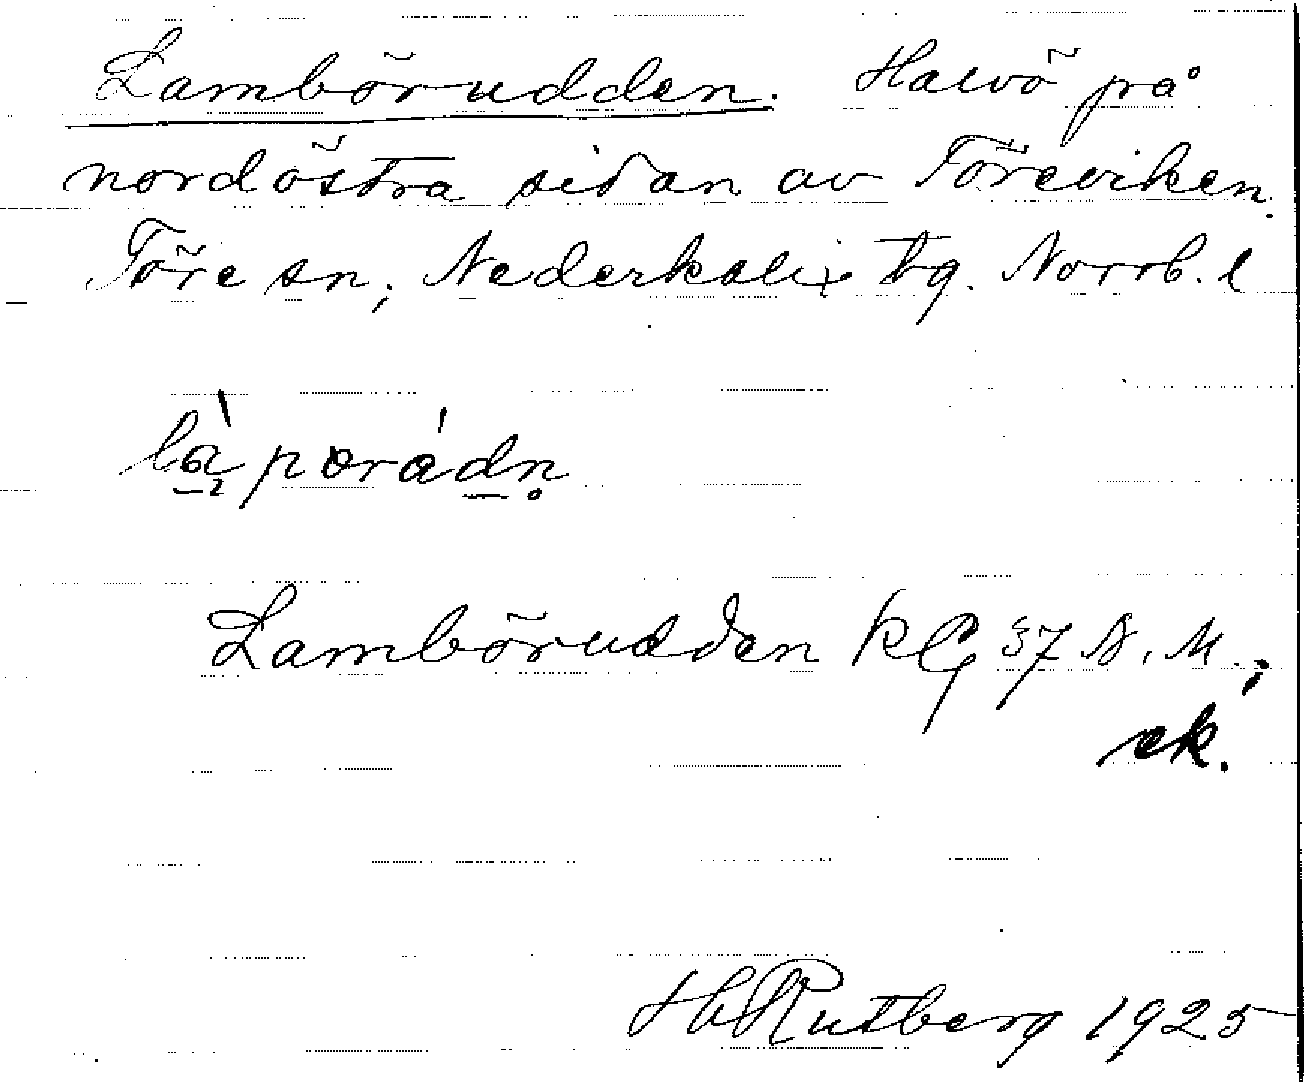 Lambörudden. Halvö på
nordöstra sidan av Töreviken.
Töre sn, Nederkalix tg. Norrb. l
Lambörudden kG 37 N. M.;
ek.
H Rutberg 1925